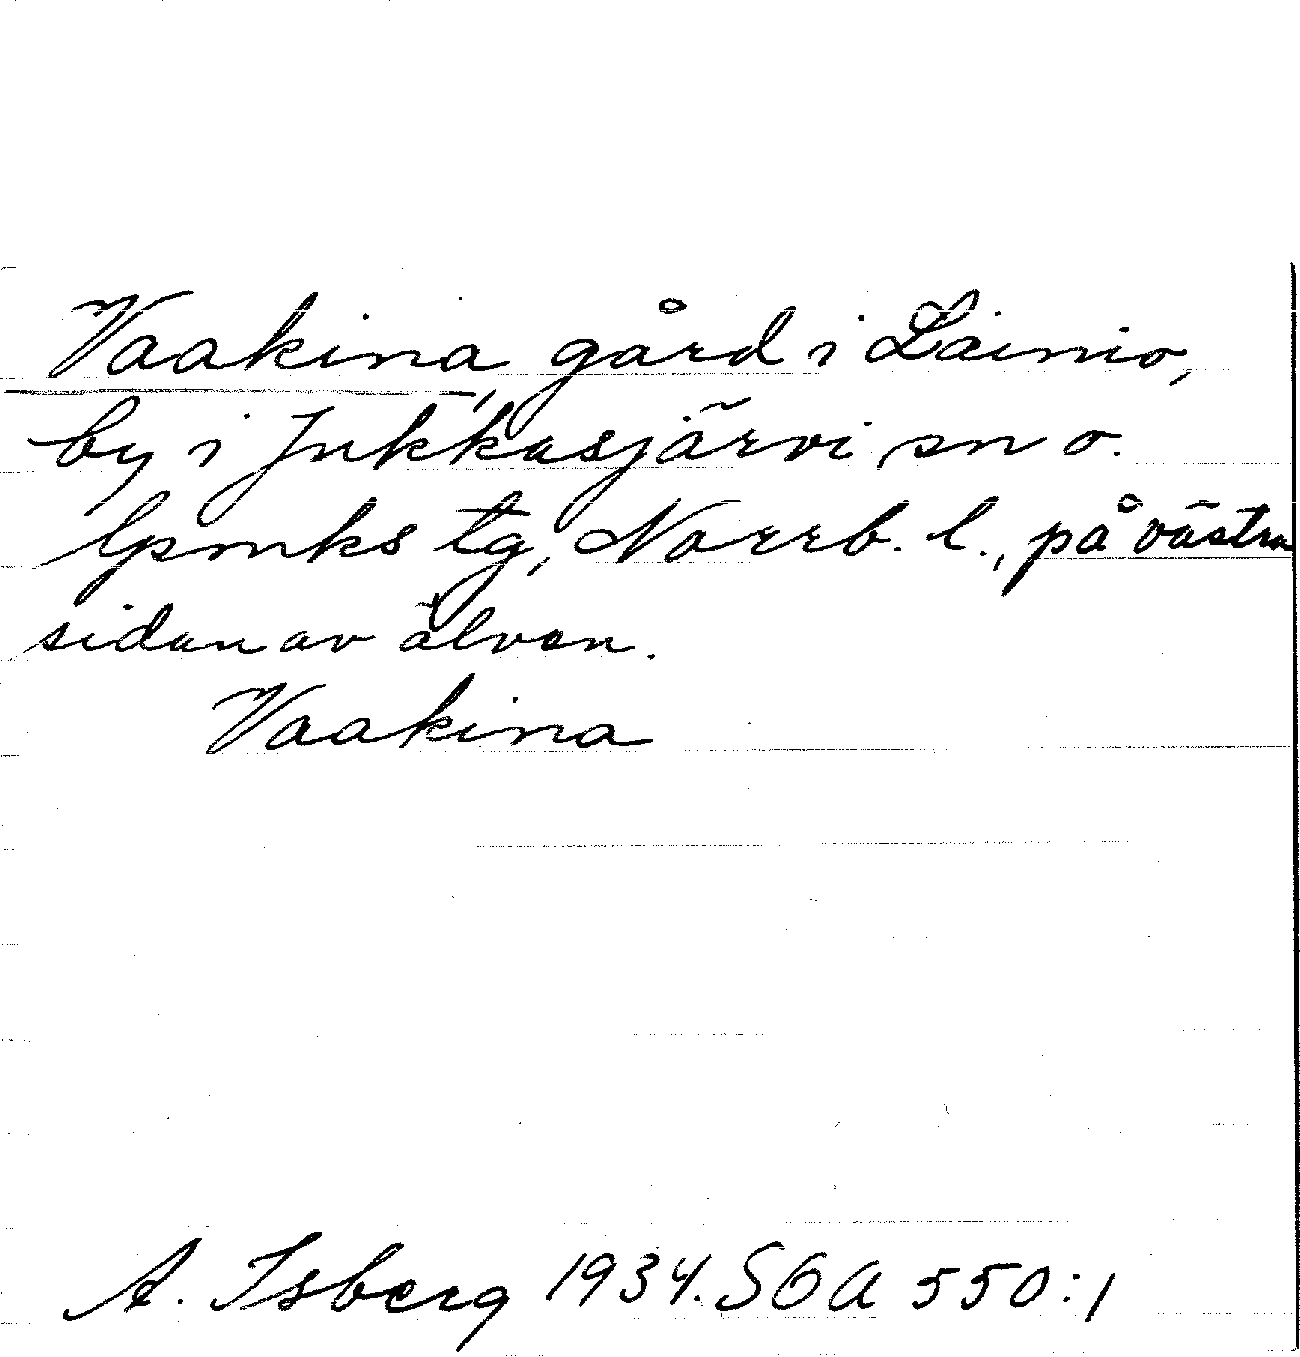 Vaakina, gård i Lainio,
by i Jukkasjärvi sn o.
lpmks tg, Norrb. l., på västra
sidan av älven.
Vaakina
A. Isberg 1934. SOA 550:1